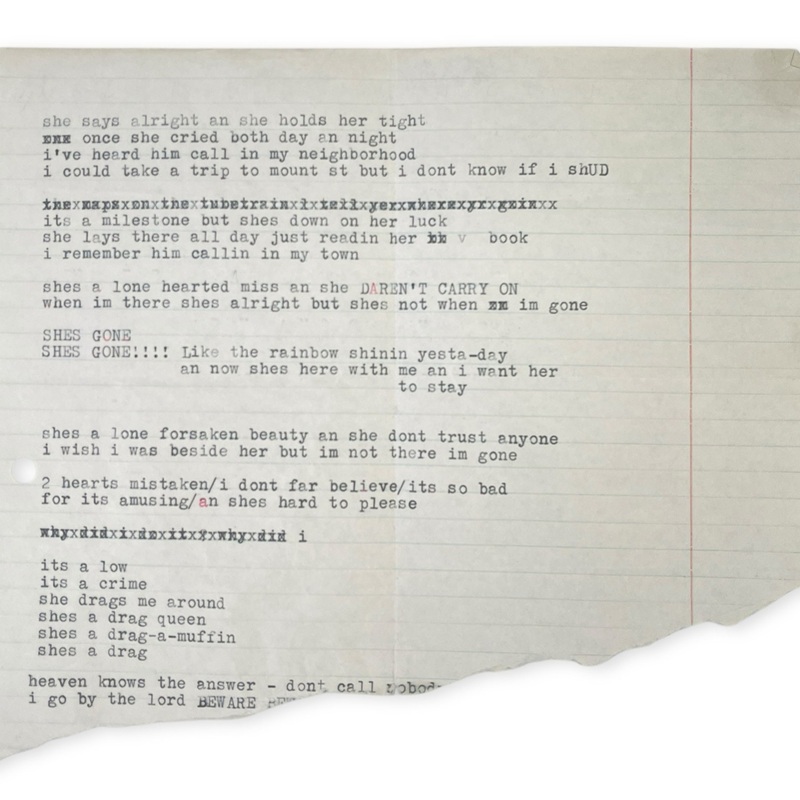 she says alright an she holds her tight
once she cried both day an night
i've heard him call in my neighborhood
i could take a trip to mount st but i dont know if i shUD
the maps on the tube train i tell yer
its a milestone but shes down on her luck
she lays there all day just readin her v book
i remember him callin in my town
shes a lone hearted miss an she DAREN'T CARRY ON
when im there shes alright but shes not when im gone
SHES GONE
SHES GONE!!!! Like the rainbow shinin yesta-day
an now shes here with me an i want her
to stay
shes a lone forsaken beauty an she dont trust anyone
i wish i was beside her but im not there im gone
2 hearts mistaken/i dont far believe/its so bad
for its amusing/an shes hard to please
why did i do it why did i
its a low
its a crime
she drags me around
shes a drag queen
shes a drag-a-muffin
shes a drag
heaven knows the answer - dont call nobody
i go by the lord BEWARE